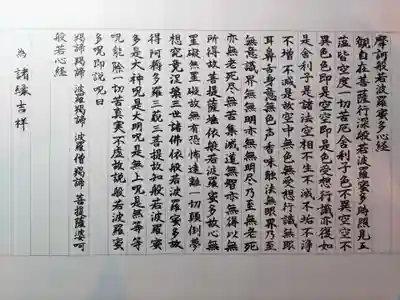 摩訶般若波羅蜜多心経
観自在菩薩行深般若波羅蜜多時照見五
蘊皆空度一切苦厄舎利子色不異空空不
異色色即是空空即是色受想行識亦復如
是舎利子是諸法空相不生不滅不垢不浄
不増不減是故空中無色無受想行識無眼
耳鼻舌身意無色声香味触法無眼界乃至
無意識界無無明亦無無明尽乃至無老死
亦無老死尽無苦集滅道無智亦無得以無
所得故菩提薩埵依般若波羅蜜多故心無
罣礙無罣礙故無有恐怖遠離一切顛倒夢
想究竟涅槃三世諸仏依般若波羅蜜多故
得阿耨多羅三藐三菩提故知般若波羅蜜
多是大神呪是大明呪是無上呪是無等等
呪能除一切苦真実不虚故説般若波羅蜜
多呪即説呪曰
羯諦 羯諦 波羅羯諦 波羅僧羯諦 菩提薩婆呵
般若心経
為 諸縁吉祥